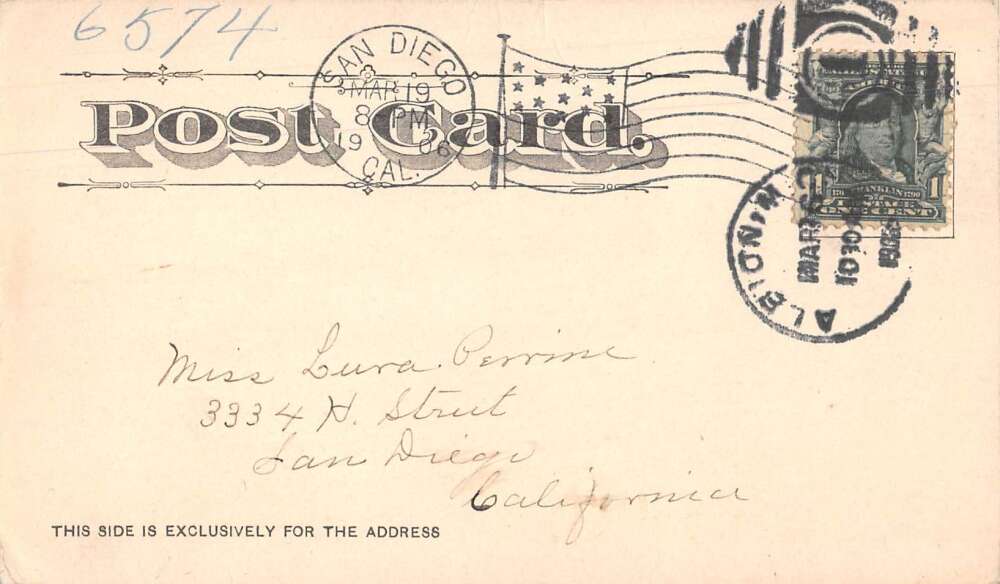 6574
SAN DIEGO
MAR 19
8 PM
1906
CAL.
Post Card.
ALBION, M
MAR
1030
1906
1 FRANKLIN 1790 1
POSTAGE
ONE CENT
Miss Lura Perrine
3334 H. Street
San Diego
California
THIS SIDE IS EXCLUSIVELY FOR THE ADDRESS